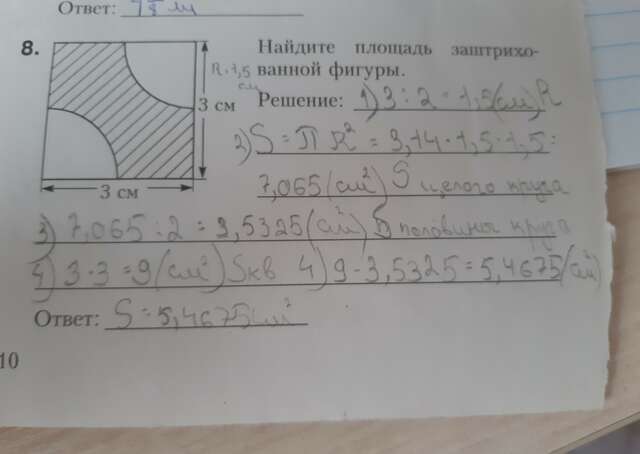 Ответ:
8.
Найдите площадь заштрихо-
R = 1,5 см
ванной фигуры.
3 см
Решение: 1) 3 : 2 = 1,5(см) R
2) S = П R² = 3,14 · 1,5 · 1,5 =
3 см
7,065 (см²) S целого круга
3) 7,065 : 2 = 3,5325 (см²) S половины круга
4) 3 · 3 = 9 (см²) Sкв 4) 9 - 3,5325 = 5,4675 (см²)
Ответ: S = 5,4675 см²
10